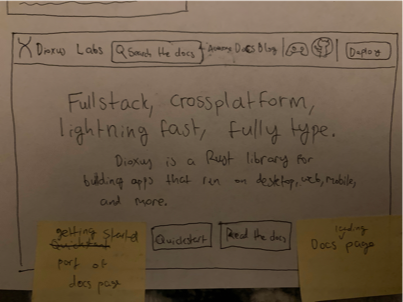 Dioxus Labs
Search the docs
Docs Blog
Deploy
Fullstack, crossplatform,
lightning fast, fully type.
Dioxus is a Rust library for
building apps that run on desktop, web, mobile,
and more.
Quickstart
Read the docs
getting started
part of
docs page
leading
Docs page